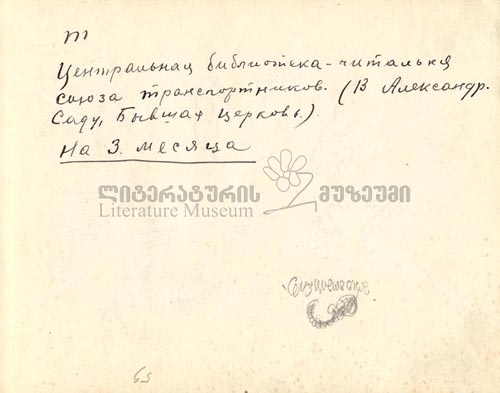 т
Центральная библиотека-читальня
союза транспортников. (В Александр.
Саду, Бывшая церковь.)
На 3. месяца
ლიტერატურის მუზეუმი
Literature Museum
65